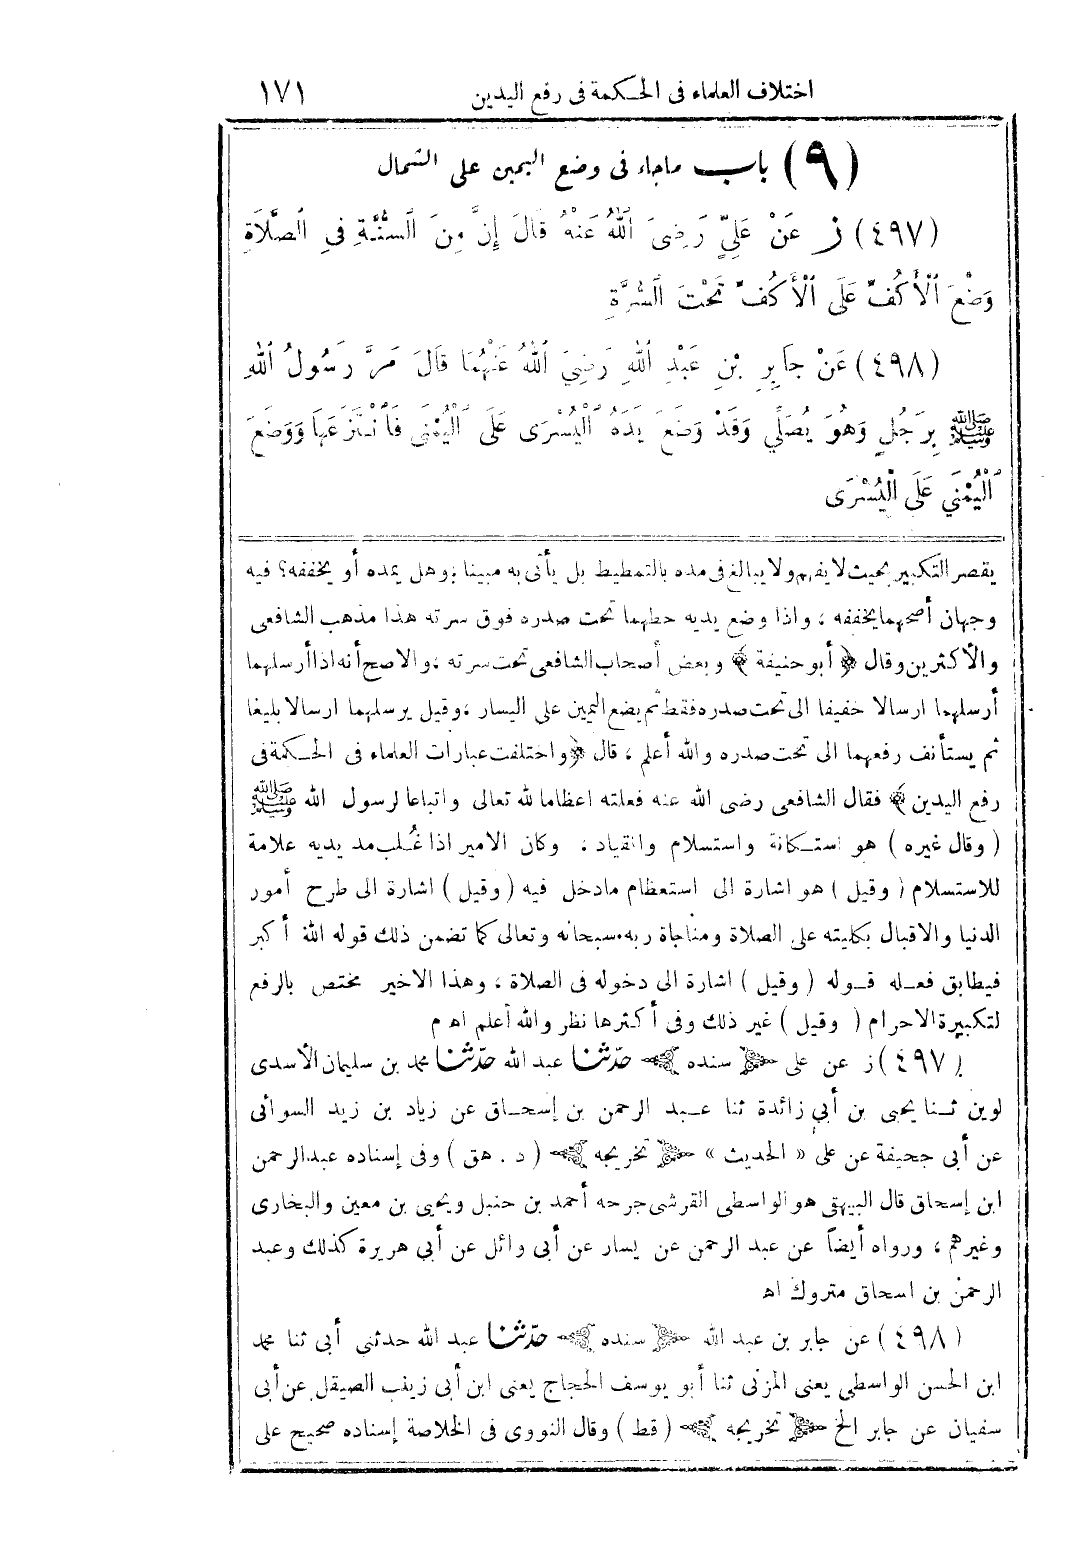 اختلاف العلماء فى الحكمة فى رفع اليدين ١٧١
(٩) باب ماجاء فى وضع اليمين على الشمال
(٤٩٧) ز عَنْ عَلِيٍّ رَضِىَ اللهُ عَنْهُ قَالَ إِنَّ مِنَ السُّنَّةِ فِى الصَّلَاةِ
وَضْعَ الْأَكُفِّ عَلَى الْأَكُفِّ تَحْتَ السُّرَّةِ
(٤٩٨) عَنْ جَابِرِ بْنِ عَبْدِ اللهِ رَضِيَ اللهُ عَنْهُمَا قَالَ مَرَّ رَسُولُ اللهِ
ﷺ بِرَجُلٍ وَهُوَ يُصَلِّي وَقَدْ وَضَعَ يَدَهُ الْيُسْرَى عَلَى الْيُمْنَى فَانْتَزَعَهَا وَوَضَعَ
الْيُمْنَي عَلَى الْيُسْرَى
يقصر التكبير بحيث لا يفهم ولا يبالغ فى مده بالتمطيط بل يأتى به مبينا ؛ وهل يمده أو يخففه؟ فيه
وجهان أصحهما يخففه ، واذا وضع يديه حطهما تحت صدره فوق سرته هذا مذهب الشافعى
والأكثرين وقال ﴿ أبو حنيفة ﴾ وبعض أصحاب الشافعى تحت سرته ، والاصح أنه اذا أرسلهما
أرسلهما ارسالا خفيفا الى تحت صدره فقط ثم يضع اليمين على اليسار ، وقيل يرسلهما ارسالا بليغا
ثم يستأنف رفعهما الى تحت صدره والله أعلم ، قال ﴿ واختلفت عبارات العلماء فى الحكمة فى
رفع اليدين ﴾ فقال الشافعى رضى الله عنه فعلته اعظاما لله تعالى واتباعا لرسول الله ﷺ
( وقال غيره ) هو استكانة واستسلام وانقياد ، وكان الامير اذا غُلب مد يديه علامة
للاستسلام ( وقيل ) هو اشارة الى استعظام مادخل فيه ( وقيل ) اشارة الى طرح أمور
الدنيا والاقبال بكليته على الصلاة ومناجاة ربه سبحانه وتعالى كما تضمن ذلك قوله الله أكبر
فيطابق فعله قوله ( وقيل ) اشارة الى دخوله فى الصلاة ، وهذا الاخير مختص بالرفع
لتكبيرة الاحرام ( وقيل ) غير ذلك وفى أكثرها نظر والله أعلم اه م
( ٤٩٧ ) ز عن على ﴿ سنده ﴾ حدّثنا عبد الله حدّثنا محمد بن سليمان الأسدى
لوين ثنا يحيى بن أبى زائدة ثنا عبد الرحمن بن إسحاق عن زياد بن زيد السوائى
عن أبى جحيفة عن على « الحديث » ﴿ تخريجه ﴾ ( د . هق ) وفى إسناده عبد الرحمن
ابن إسحاق قال البيهقى هو الواسطى القرشى جرحه أحمد بن حنبل ويحيى بن معين والبخارى
وغيرهم ، ورواه أيضاً عن عبد الرحمن عن يسار عن أبى وائل عن أبى هريرة كذلك وعبد
الرحمن بن اسحاق متروك اه
( ٤٩٨ ) عن جابر بن عبد الله ﴿ سنده ﴾ حدّثنا عبد الله حدثنى أبى ثنا محمد
ابن الحسن الواسطى يعنى المزنى ثنا أبو يوسف الحجاج يعنى ابن أبى زينب الصيقل عن أبى
سفيان عن جابر الخ ﴿ تخريجه ﴾ ( قط ) وقال النووى فى الخلاصة إسناده صحيح على